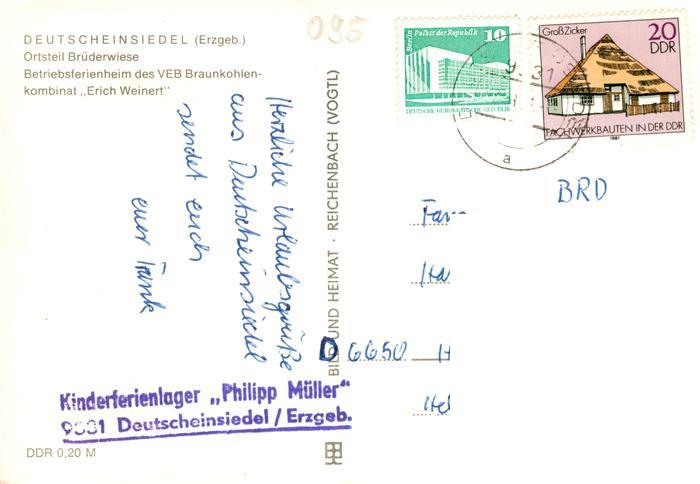 DEUTSCHEINSIEDEL (Erzgeb.)
Ortsteil Brüderwiese
Betriebsferienheim des VEB Braunkohlen-
kombinat „Erich Weinert"
095
Berlin Palast der Republik
10
DEUTSCHE DEMOKRATISCHE REPUBLIK
Groß Zicker
20
DDR
FACHWERKBAUTEN IN DER DDR
1981
a
Herzliche Urlaubsgrüße
aus Deutscheinsiedel
sendet euch
euer Frank
BILD UND HEIMAT · REICHENBACH (VOGTL)
BRD
Fam
D 6650 H
Kinderferienlager „Philipp Müller"
9331 Deutscheinsiedel / Erzgeb.
DDR 0,20 M